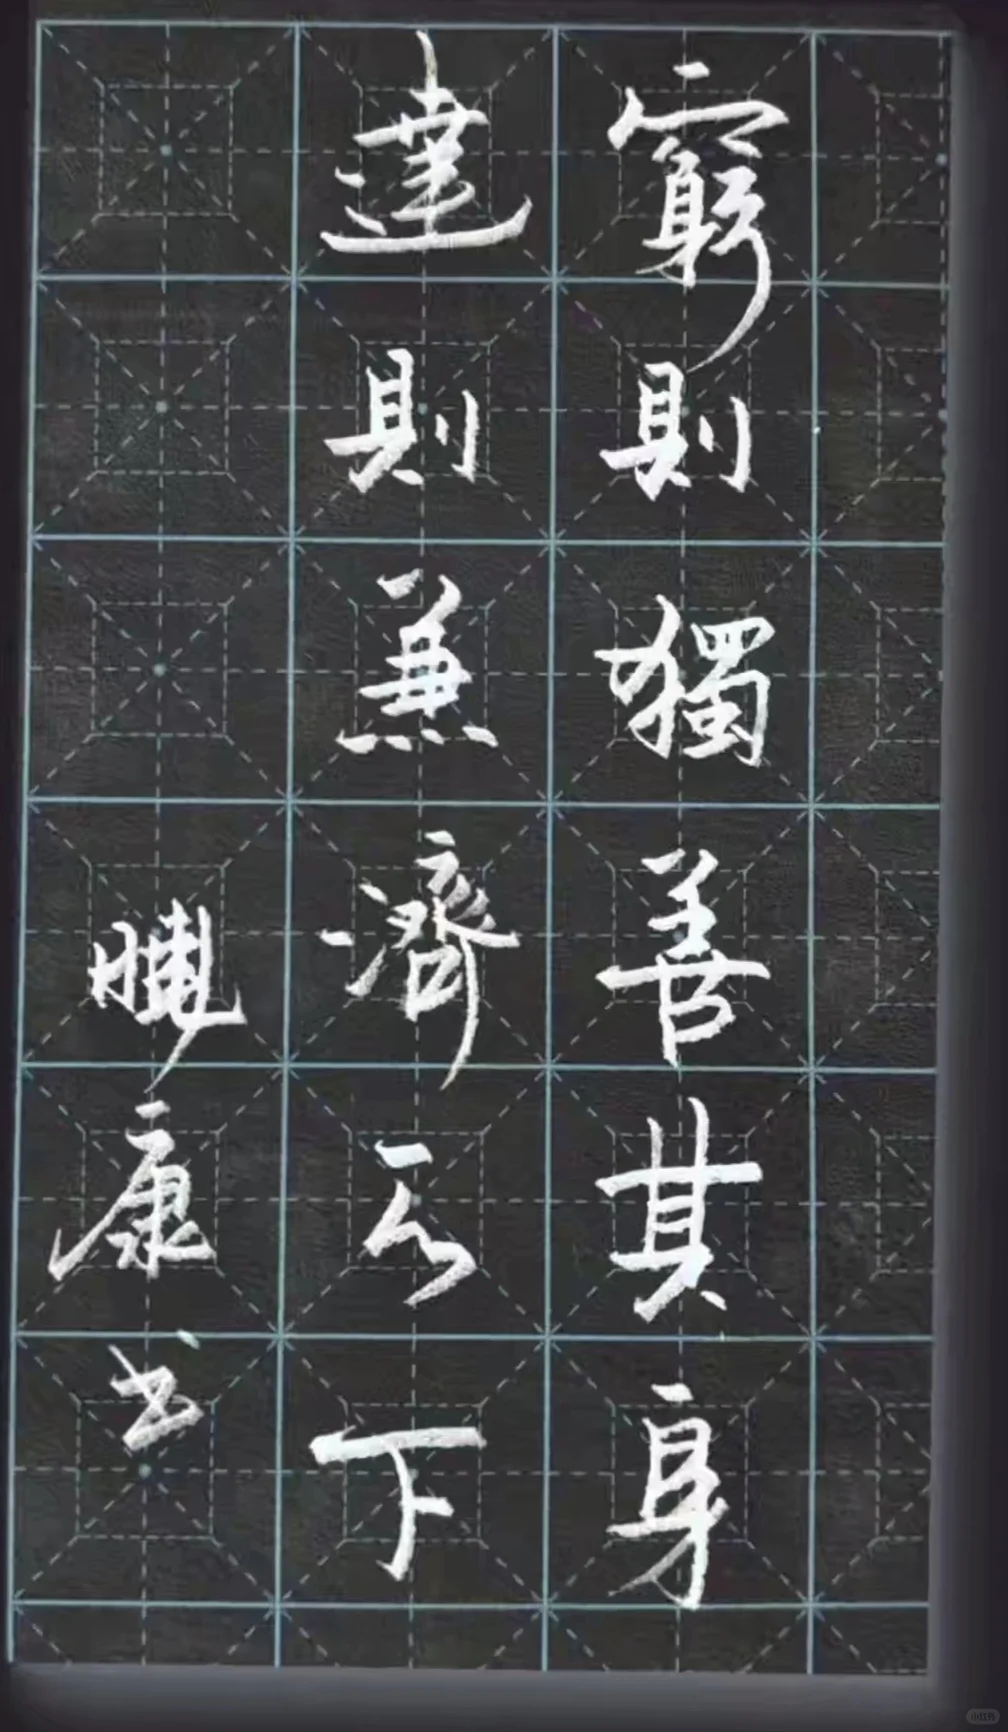 窮則獨善其身
達則兼濟天下
曉康書